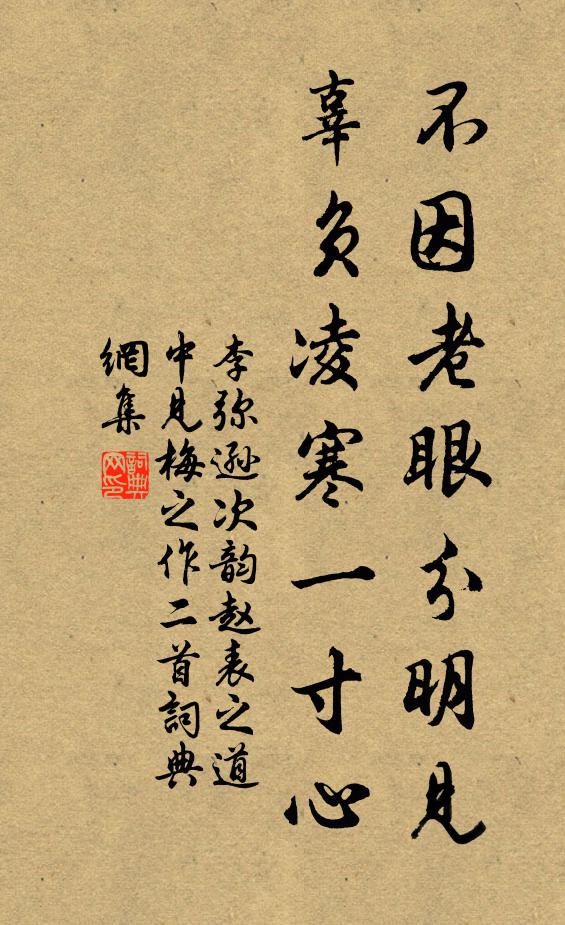 不因老眼分明见
辜负凌寒一寸心
李弥逊次韵赵表之道
中见梅之作二首詞典
網集
詞典
网印